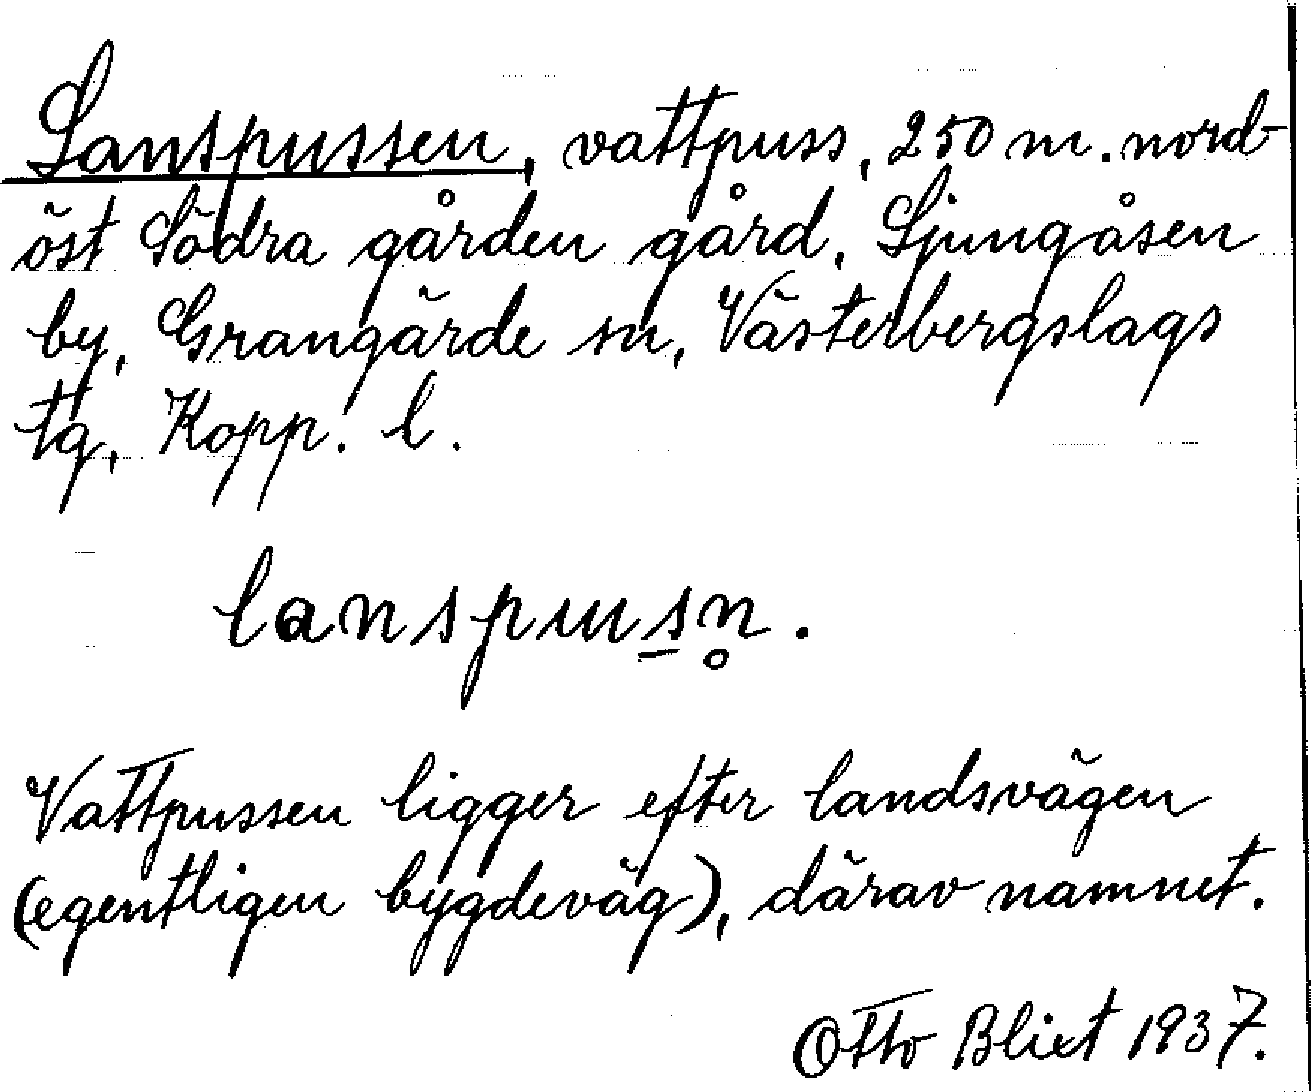 Lanspussen, vattpuss, 250 m. nord-
öst Södra gården gård, Ljungåsen
by, Grangärde sn, Västerbergslags
tg, Kopp. l.
lanspus̲n̥.
Vattpussen ligger efter landsvägen
(egentligen bygdeväg), därav namnet.
Otto Blixt 1937.